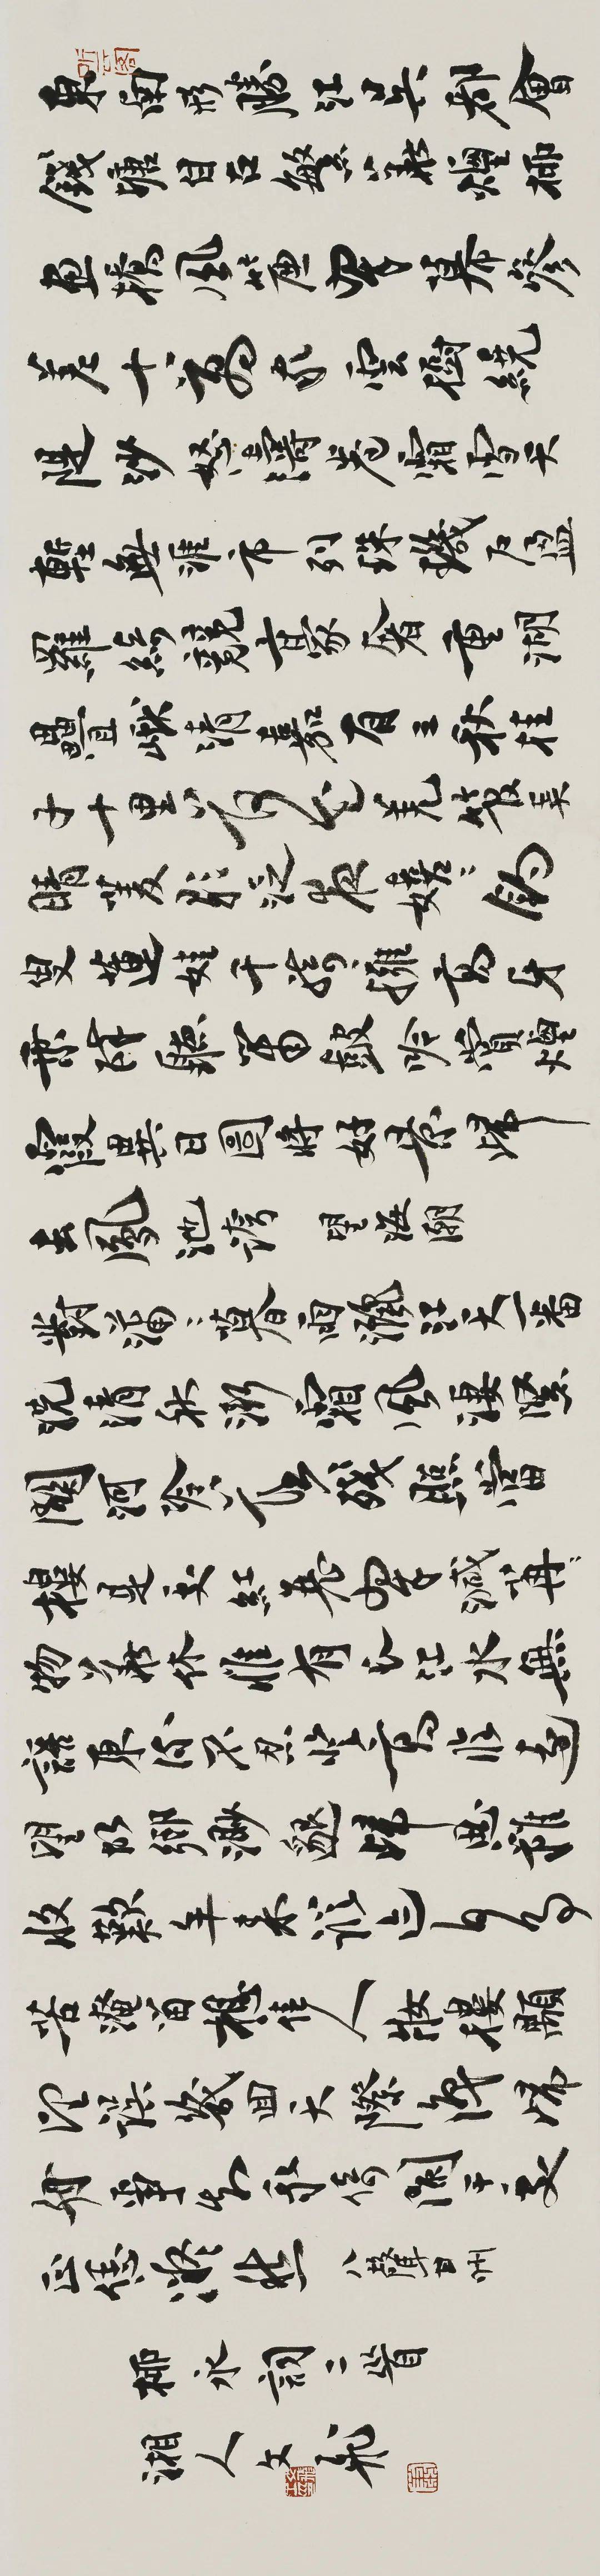 東南形勝江吳都會
錢塘自古繁華煙柳
畫橋風簾翠幕參
差十萬家雲樹繞
堤沙怒濤卷霜雪天
塹無涯市列珠璣戶盈
羅綺競豪奢重湖
疊巘清嘉有三秋桂
子十里荷花羌管弄
晴菱歌泛夜嬉嬉釣
叟蓮娃千騎擁高牙
乘醉聽簫鼓吟賞煙
霞異日圖將好景歸
去鳳池誇 望海潮
對瀟瀟暮雨灑江天一番
洗清秋漸霜風淒緊
關河冷落殘照當
樓是處紅衰翠減苒苒
物華休惟有長江水無
語東流不忍登高臨遠
望故鄉渺邈歸思難
收歎年來蹤跡何事
苦淹留想佳人妝樓顒
望誤幾回天際識歸
舟爭知我倚闌干處
正恁凝愁 八聲甘州
柳永詞二首
湘人文